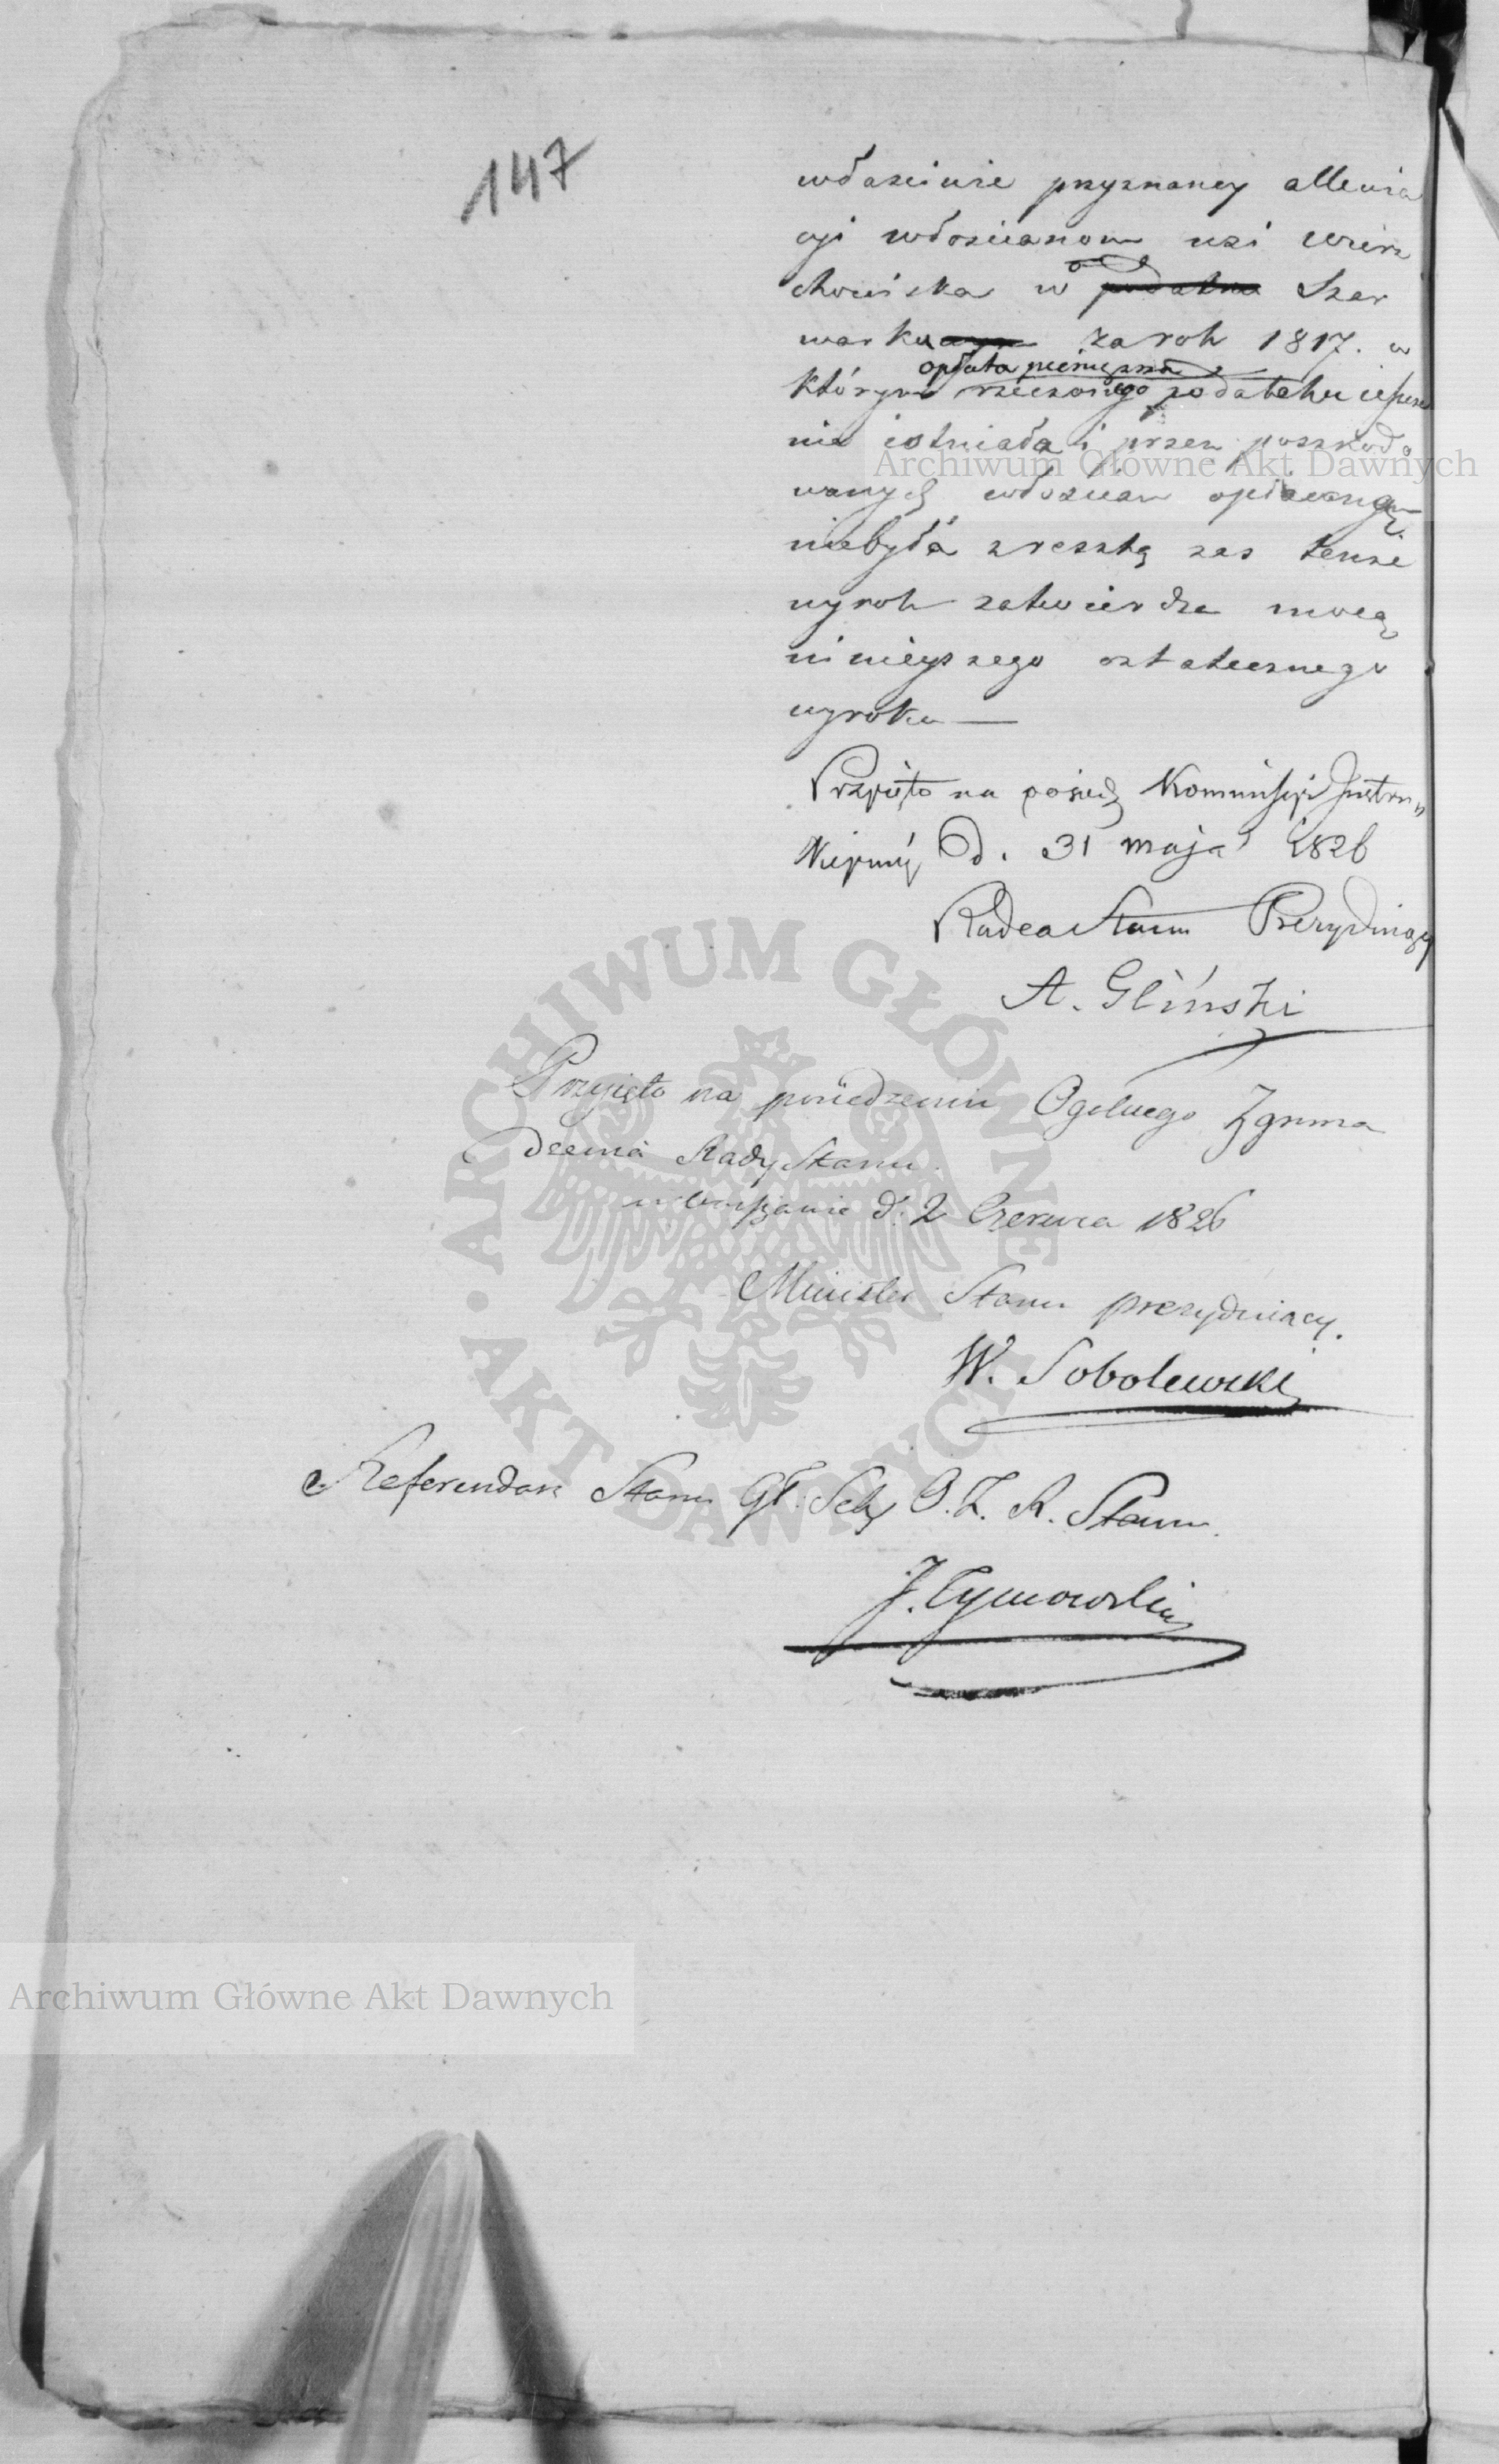 147
właściwie przyznaney allewia
cyi włościanom wsi Wierz
chowiska w podatku Szar
warku za rok 1817. w
opłata pieniężna
którym rzeczonego podatku ieszcze
nie istniała i przez poszkodo
wanych włościan opłacaną
niebyła zresztą zas tenże
wyrok zatwierdza mocą
ninieyszego ostatecznego
wyroku —
Przyięto na posiedz Kommissyi Instru
kcyiney d. 31 maja 1826
Radca Stanu Prezyduiący
A. Gliński
Przyięto na posiedzeniu Ogolnego Zgroma
dzenia Rady Stanu.
w Warszawie d. 2 Czerwca 1826
Minister Stanu prezyduiący.
W. Sobolewski
Referendarz Stanu Gł. Sek. O. Z. R. Stanu
J. Tymowski
Archiwum Główne Akt Dawnych
ARCHIWUM GŁÓWNE • AKT DAWNYCH •
Archiwum Główne Akt Dawnych